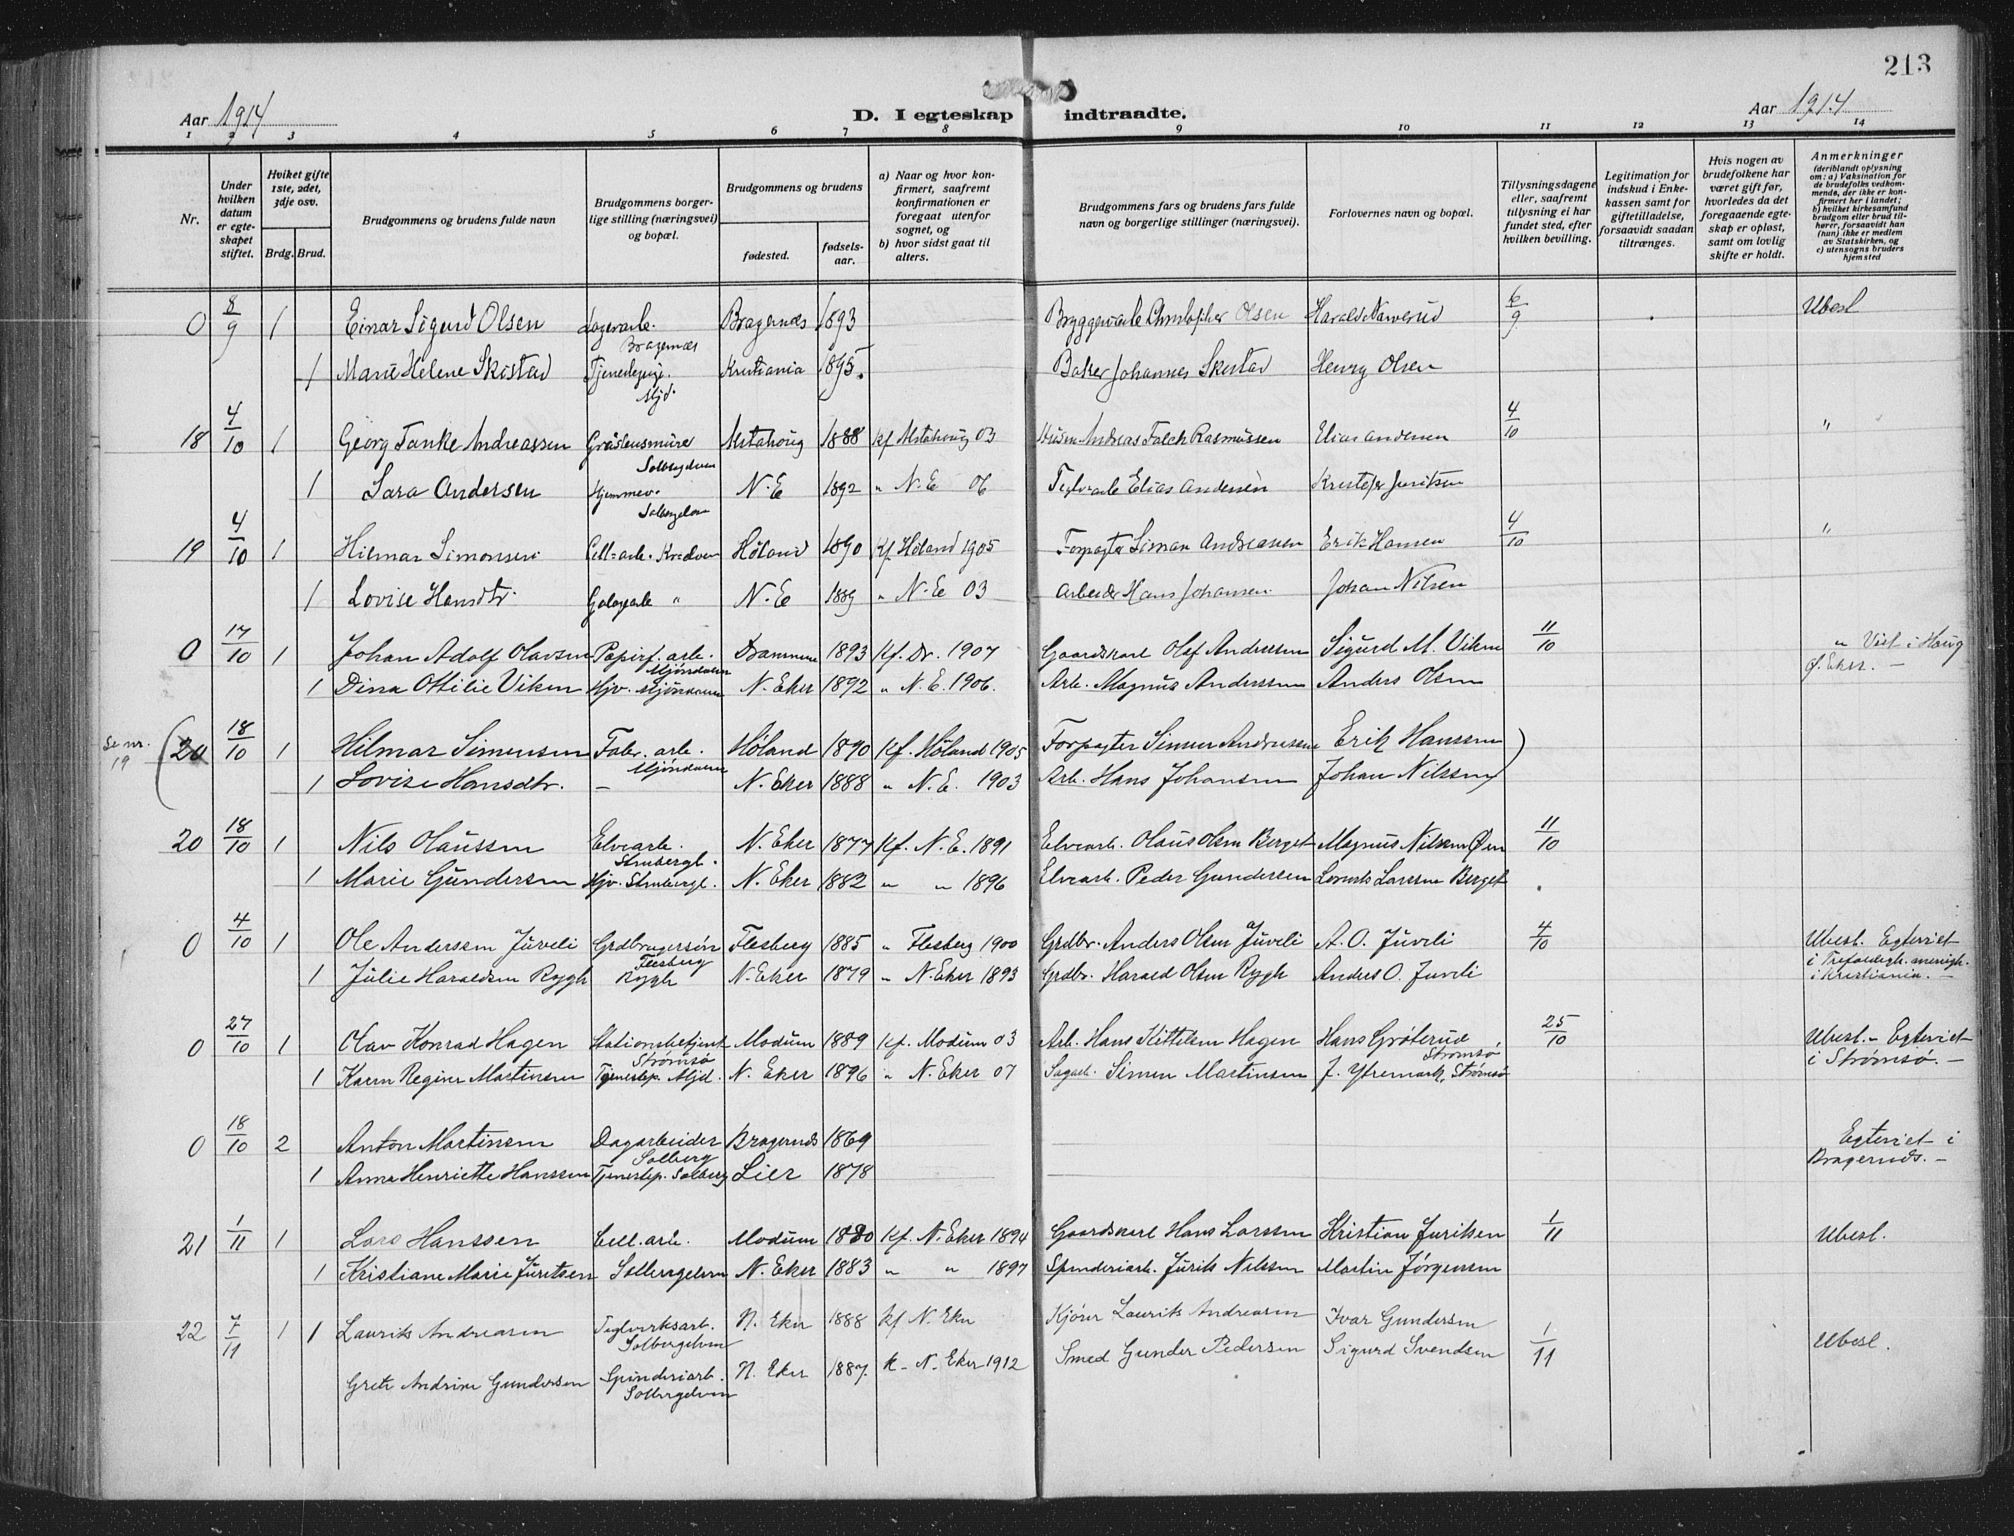 213
Aar 1914
D. I egteskap indtraadte.
Aar 1914
1 2 3 4 5 6 7 8 9 10 11 12 13 14
Nr.
Under hvilken datum er egteskapet stiftet.
Hviket gifte 1ste, 2det, 3dje osv.
Brdg. Brud.
Brudgommens og brudens fulde navn
Brudgommens borgerlige stilling (næringsvei) og bopæl.
Brudgommens og brudens
fødested.
fødselsaar.
a) Naar og hvor konfirmert, saafremt konfirmationen er foregaat utenfor sognet, og
b) hvor sidst gaat til alters.
Brudgommens fars og brudens fars fulde navn og borgerlige stillinger (næringsvei).
Forlovernes navn og bopæl.
Tillysningsdagene eller, saafremt tillysning ei har fundet sted, efter hvilken bevilling.
Legitimation for indskud i Enkekassen samt for giftetilladelse, forsaavidt saadan tiltrænges.
Hvis nogen av brudefolkene har været gift før, hvorledes da det foregaaende egteskap er opløst, samt om lovlig skifte er holdt.
Anmerkninger (deriblandt oplysning om: a) Vaksination for de brudefolks vedkommende, der ikke er konfirmert her i landet; b) hvilket kirkesamfund brudgom eller brud tilhører, forsaavidt han (hun) ikke er medlem av Statskirken, og c) utensogns bruders hjemsted
0 8/9 1 Einar Sigurd Olsen Lagerarb. Bragernæs Bragernæs 1893 Bryggeriarb Christopher Olsen Harald Narverud 6/9 Ubesl
1 Marie Helene Skistad Tjenestepige. Mjd. Kristiania 1895. Baker Johannes Skistad Henry Olsen
18 4/10 1 Georg Tanke Andreassen Gråstensmurer Solbergelven Alstahoug 1888 kf Alstahoug 03 Andreas Falch Rasmussen Elias Andersen 4/10 "
1 Sara Andersen Hjemmev. Solbergelven N.E 1892 " N.E 06 Teglverarb Elias Andersen Kristofer Juritsen
19 4/10 1 Hilmar Simonsen Cell=arb. Krokelven Høland 1890 Kf. Høland 1905 Forpagter Simon Andreasen Erik Hansen 4/10 "
1 Lovise Hansdtr. " N.E 1889 " N.E 03 Arbeider Hans Johansen. Johan Nilsen
0 17/10 1 Johan Adolf Olavsen Papirf. arb. Mjøndalen Drammen 1893 Kf. Dr. 1907 Gaardskarl Olef Andersen Sigurd M. Viken 11/10 " Viet i Haug Ø. Eker. —
1 Dina Ottilie Viken Hjv. Mjøndalen N. Eker 1892 " N.E. 1906. Arb. Magnus Anderssen Anders Olsen
Se nr. 19 (20 18/10 1 Hilmar Simensen Fabr. arb. Mjøndalen Høland 1890 Kf. Høland 1905 Forpagter Simen Andressen Erik Hanssen )
1 Lovise Hansdtr. — N. Eker 1888 " N.E. 1903 Arb. Hans Johansen Johan Nilssen
20 18/10 1 Nils Olaussen Elvearb. Stenbergl. N. Eker 1877 Kf. N.E. 1891 Elvearb. Olaus Olsen Berget Magnus Nilssen Øen 11/10
1 Marie Gundersen Hjv. Stenbergl. N. Eker 1882 " " 1896 Elvearb. Peder Gundersen Larssen Berget
0 4/10 1 Ole Anderssen Juveli Grdbrugersøn Flesberg Flesberg 1885 " Flesberg 1900 Grdbr. Anders Olsen Juveli A. O. Juveli 4/10 Ubesl. Egteviet i Trefoldigh. menigh. i Kristiania. —
1 Julie Haraldsen Rygh Rygh N. Eker 1879 " N. Eker 1893 Grdbr. Harald Olsen Rygh Anders O. Juveli
0 27/10 1 Olav Konrad Hagen Stationsbetjent Strømsø Modum 1889 Kf. Modum 03 Arb. Hans Kittelsen Hagen Hans Grøterud Strømsø 25/10 Ubesl. — Egteviet i Strømsø. —
1 Karen Regine Martinsen Tjenestep. Mjd. N. Eker 1896 " N. Eker 07 Sagarb. Simen Martinsen J. Ytremark, Strømsø
0 18/10 2 Anton Martinsen Dagarbeider Solberg Bragernes 1869 Egteviet i Bragernes. —
1 Anna Henriette Hanssen Tjenestep. Solberg Lier 1878
21 1/11 1 Lars Hanssen Cell. arb. Modum 1880 Kf. N. Eker 1894 Gaardskarl Hans Larssen Kristian Juritsen 1/11 Ubesl.
1 Kristiane Marie Juritsen Solbergelven N. Eker 1883 " " 1897 Spinderiarb. Jurits Nilssen Martin Jørgensen
22 7/11 1 1 Laurits Andreasen Teglverksarb. Solbergelven N. Eker 1888 kf N. Eker Kjører Laurits Andreasen Ivar Gundersen 1/11 Ubesl.
Grete Andrine Gundersen Spinderiarb. Solbergelven N. Eker 1887. k - N. Eker 1912 Smed Gunder Pedersen Sigurd Svendsen